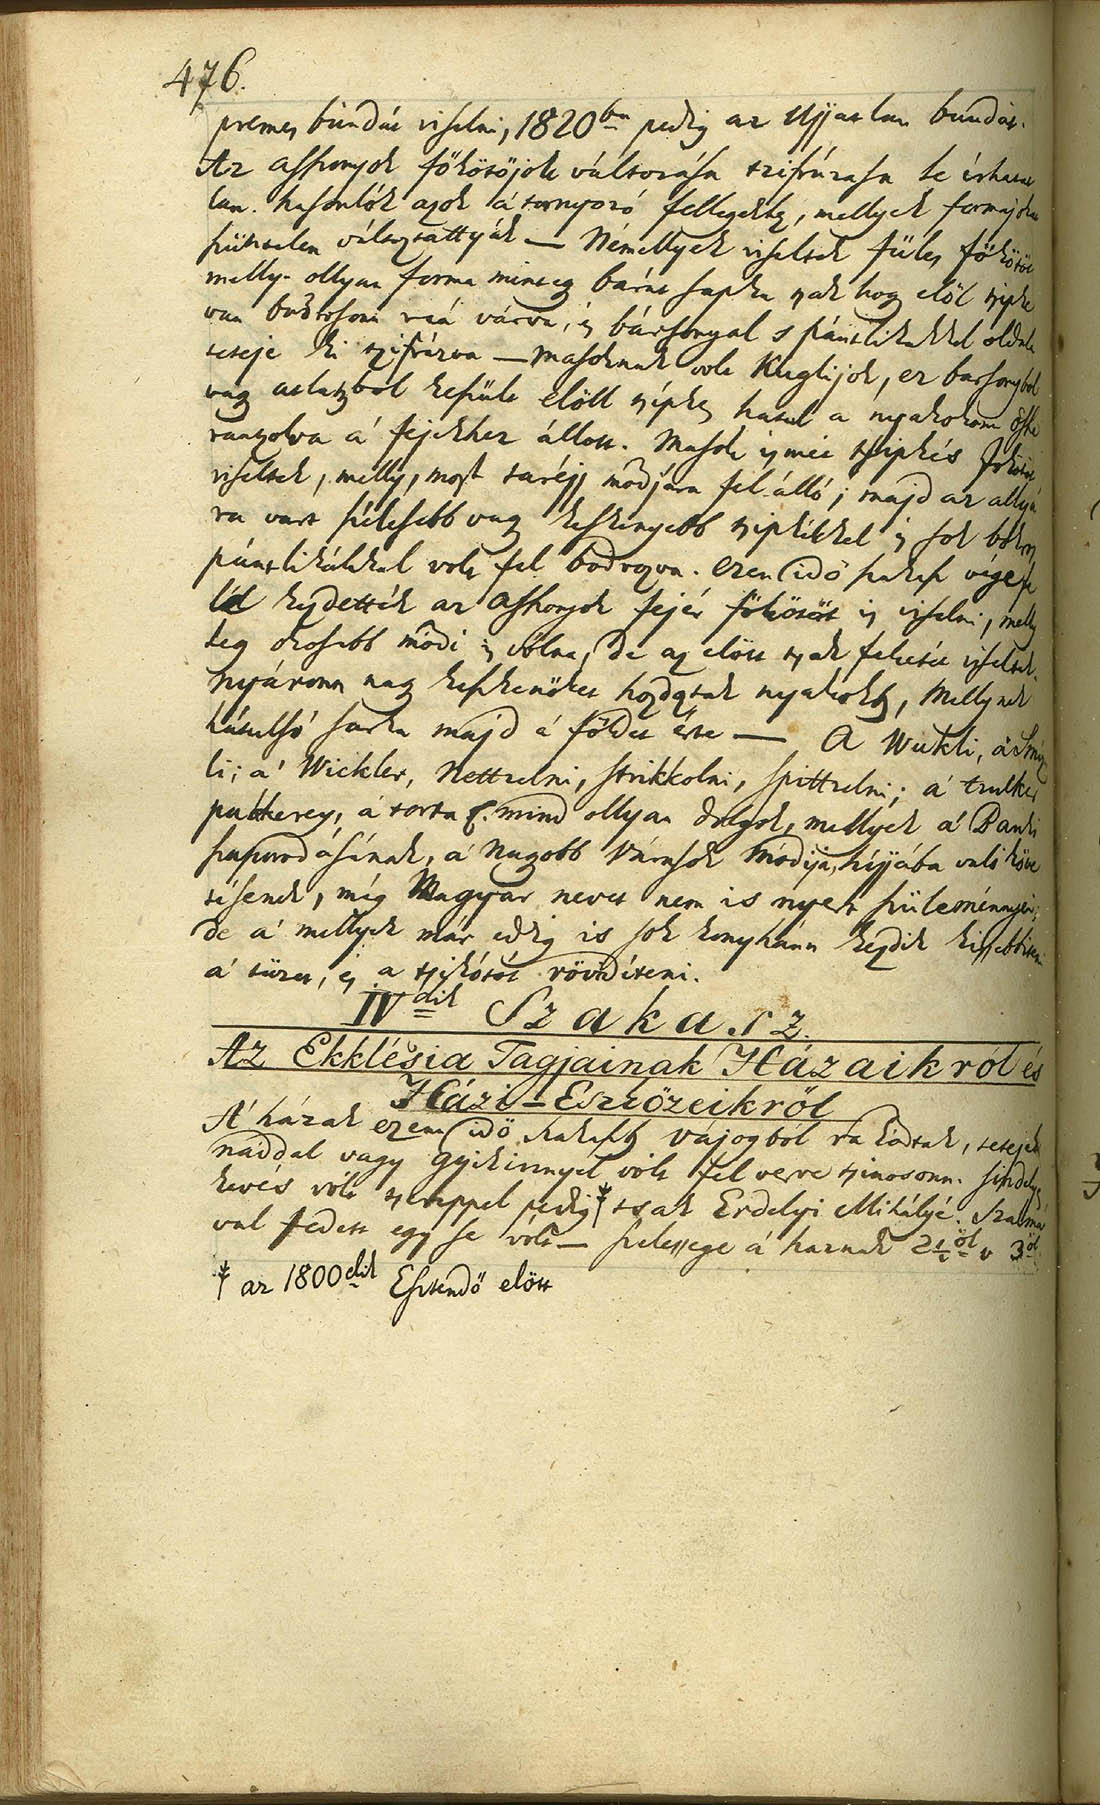 476.
premes bundát viselni, 1820ba pedig az Ujjatlan bundát.
Az asszonyok főkötőjök változása tzifrázása le írhatat
lan. hasonlók azok á tornyozó fellegekhez, mellyek formájokat
szüntelen változtattyák — Némellyek viseltek füles főkötőt
melly ollyan forma mint eg báránt sapka tsak hogy elöl tsipke
van ránA várva, is bársonyal s pántlikákkal oldala
teteje ki tzifrázva — masoknak volt Kuglijok, ez barsonybol
vag atlatzból készült elöll tsipkes hatul a nyakokonn össze
rantzolva á fejekhez állott. Masok ismét tsipkés fökötöt
viseltek, melly, most taréjj módjára fel álló; majd az allyá
ra vart szélesebb vag keskenyebb tsipkékkel is sok bokros
pántlikákkal volt fel bodrozva. ezen idő szakasz vége fe
lél kezdették az Asszonyok fejér főkötöt is viselni, melly
leg okossabb módi is vólna, de az elött tsak feketét viseltek.
Nyáronn nag keszkenöket hordoztak nyakokba, mellynek
hátulsó sarka majd á földet érte — A Wukli, á
li; á Wickler, Nettzelni, strikkolni, spittzelni; á
á torta s. mind ollyan dolgok, mellyek á
szaporodásának, á Nagyobb Városok módija, hijjába való köve
tésének, még Magyar nevet nem is nyert szüleménnyei;
de á mellyek már eddig is sok konyhánn kezdik kissebbíteni
á tüzet, is a tsikótót rövidíteni.
IVdik Szakasz.
Az Ekklésia Tagjainak Házaikról és
Házi-Eszközeikről
A házak ezenn idő szakaszb vájogból rakodtak, tetejek
náddal vagy gyékinnyel vólt fel verve tsinosonn. sindelyes
kevés vólt tseréppel pedig * tsak Erdelyi Mihályé. Szalmá
val fedett egy se vólt — szelessege á haznak 2½ öl v 3 öl.
* az 1800dik Esztendő elött